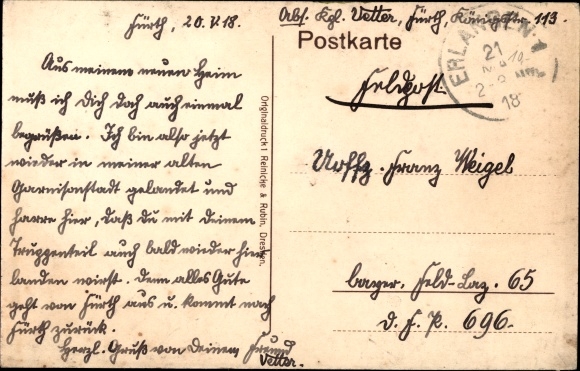 Fürth, 20.V.18.
Abs. Kgl. Vetter, Fürth, Königstr. 113.
Postkarte
Feldpost.
ERLANGEN 1
21
2-3 Nm.
18
Aus meinem neuen Heim
muß ich Dich doch auch einmal
begrüßen. Ich bin also jetzt
wieder in meiner alten
Garnisonstadt gelandet und
harre hier, daß du mit deinem
Truppenteil auch bald wieder hier
landen wirst. denn alles Gute
geht von Fürth aus u. kommt nach
Fürth zurück.
Herzl. Gruß von Deinem Freund
Vetter.
Originaldruck! Reinicke & Rubin, Dresden.
Uoffz. Franz Weigel
bayer. Feld-Laz. 65
d. F. P. 696.